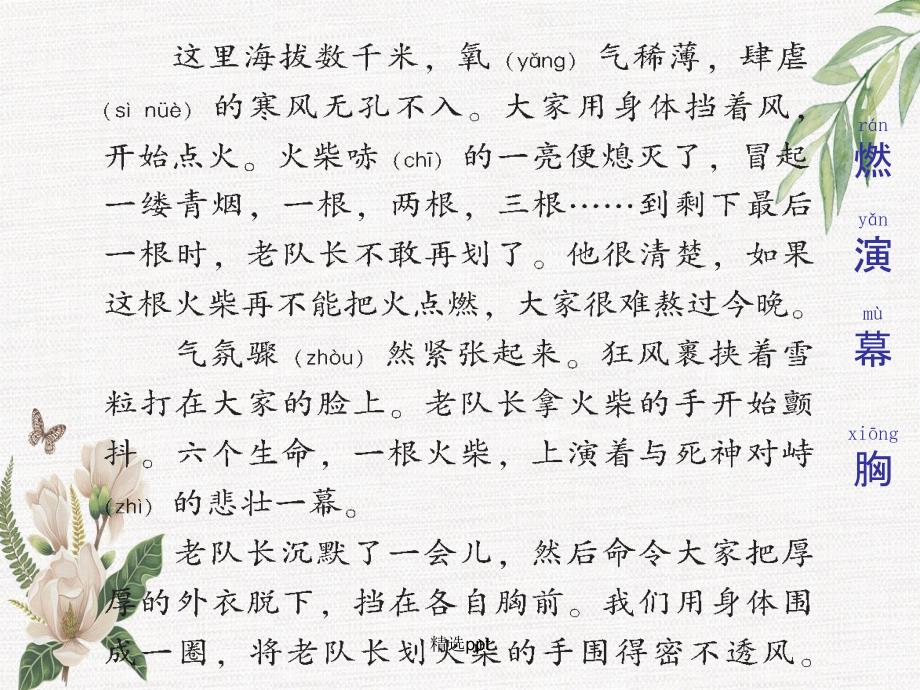 这里海拔数千米，氧(yǎng)气稀薄，肆虐
(sì nüè)的寒风无孔不入。大家用身体挡着风，
开始点火。火柴哧(chī)的一亮便熄灭了，冒起
一缕青烟，一根，两根，三根……到剩下最后
一根时，老队长不敢再划了。他很清楚，如果
这根火柴再不能把火点燃，大家很难熬过今晚。
气氛骤(zhòu)然紧张起来。狂风裹挟着雪
粒打在大家的脸上。老队长拿火柴的手开始颤
抖。六个生命，一根火柴，上演着与死神对峙
(zhì)的悲壮一幕。
老队长沉默了一会儿，然后命令大家把厚
厚的外衣脱下，挡在各自胸前。我们用身体围
成一圈，将老队长划火柴的手围得密不透风。
精选ppt
rán
燃
yǎn
演
mù
幕
xiōng
胸